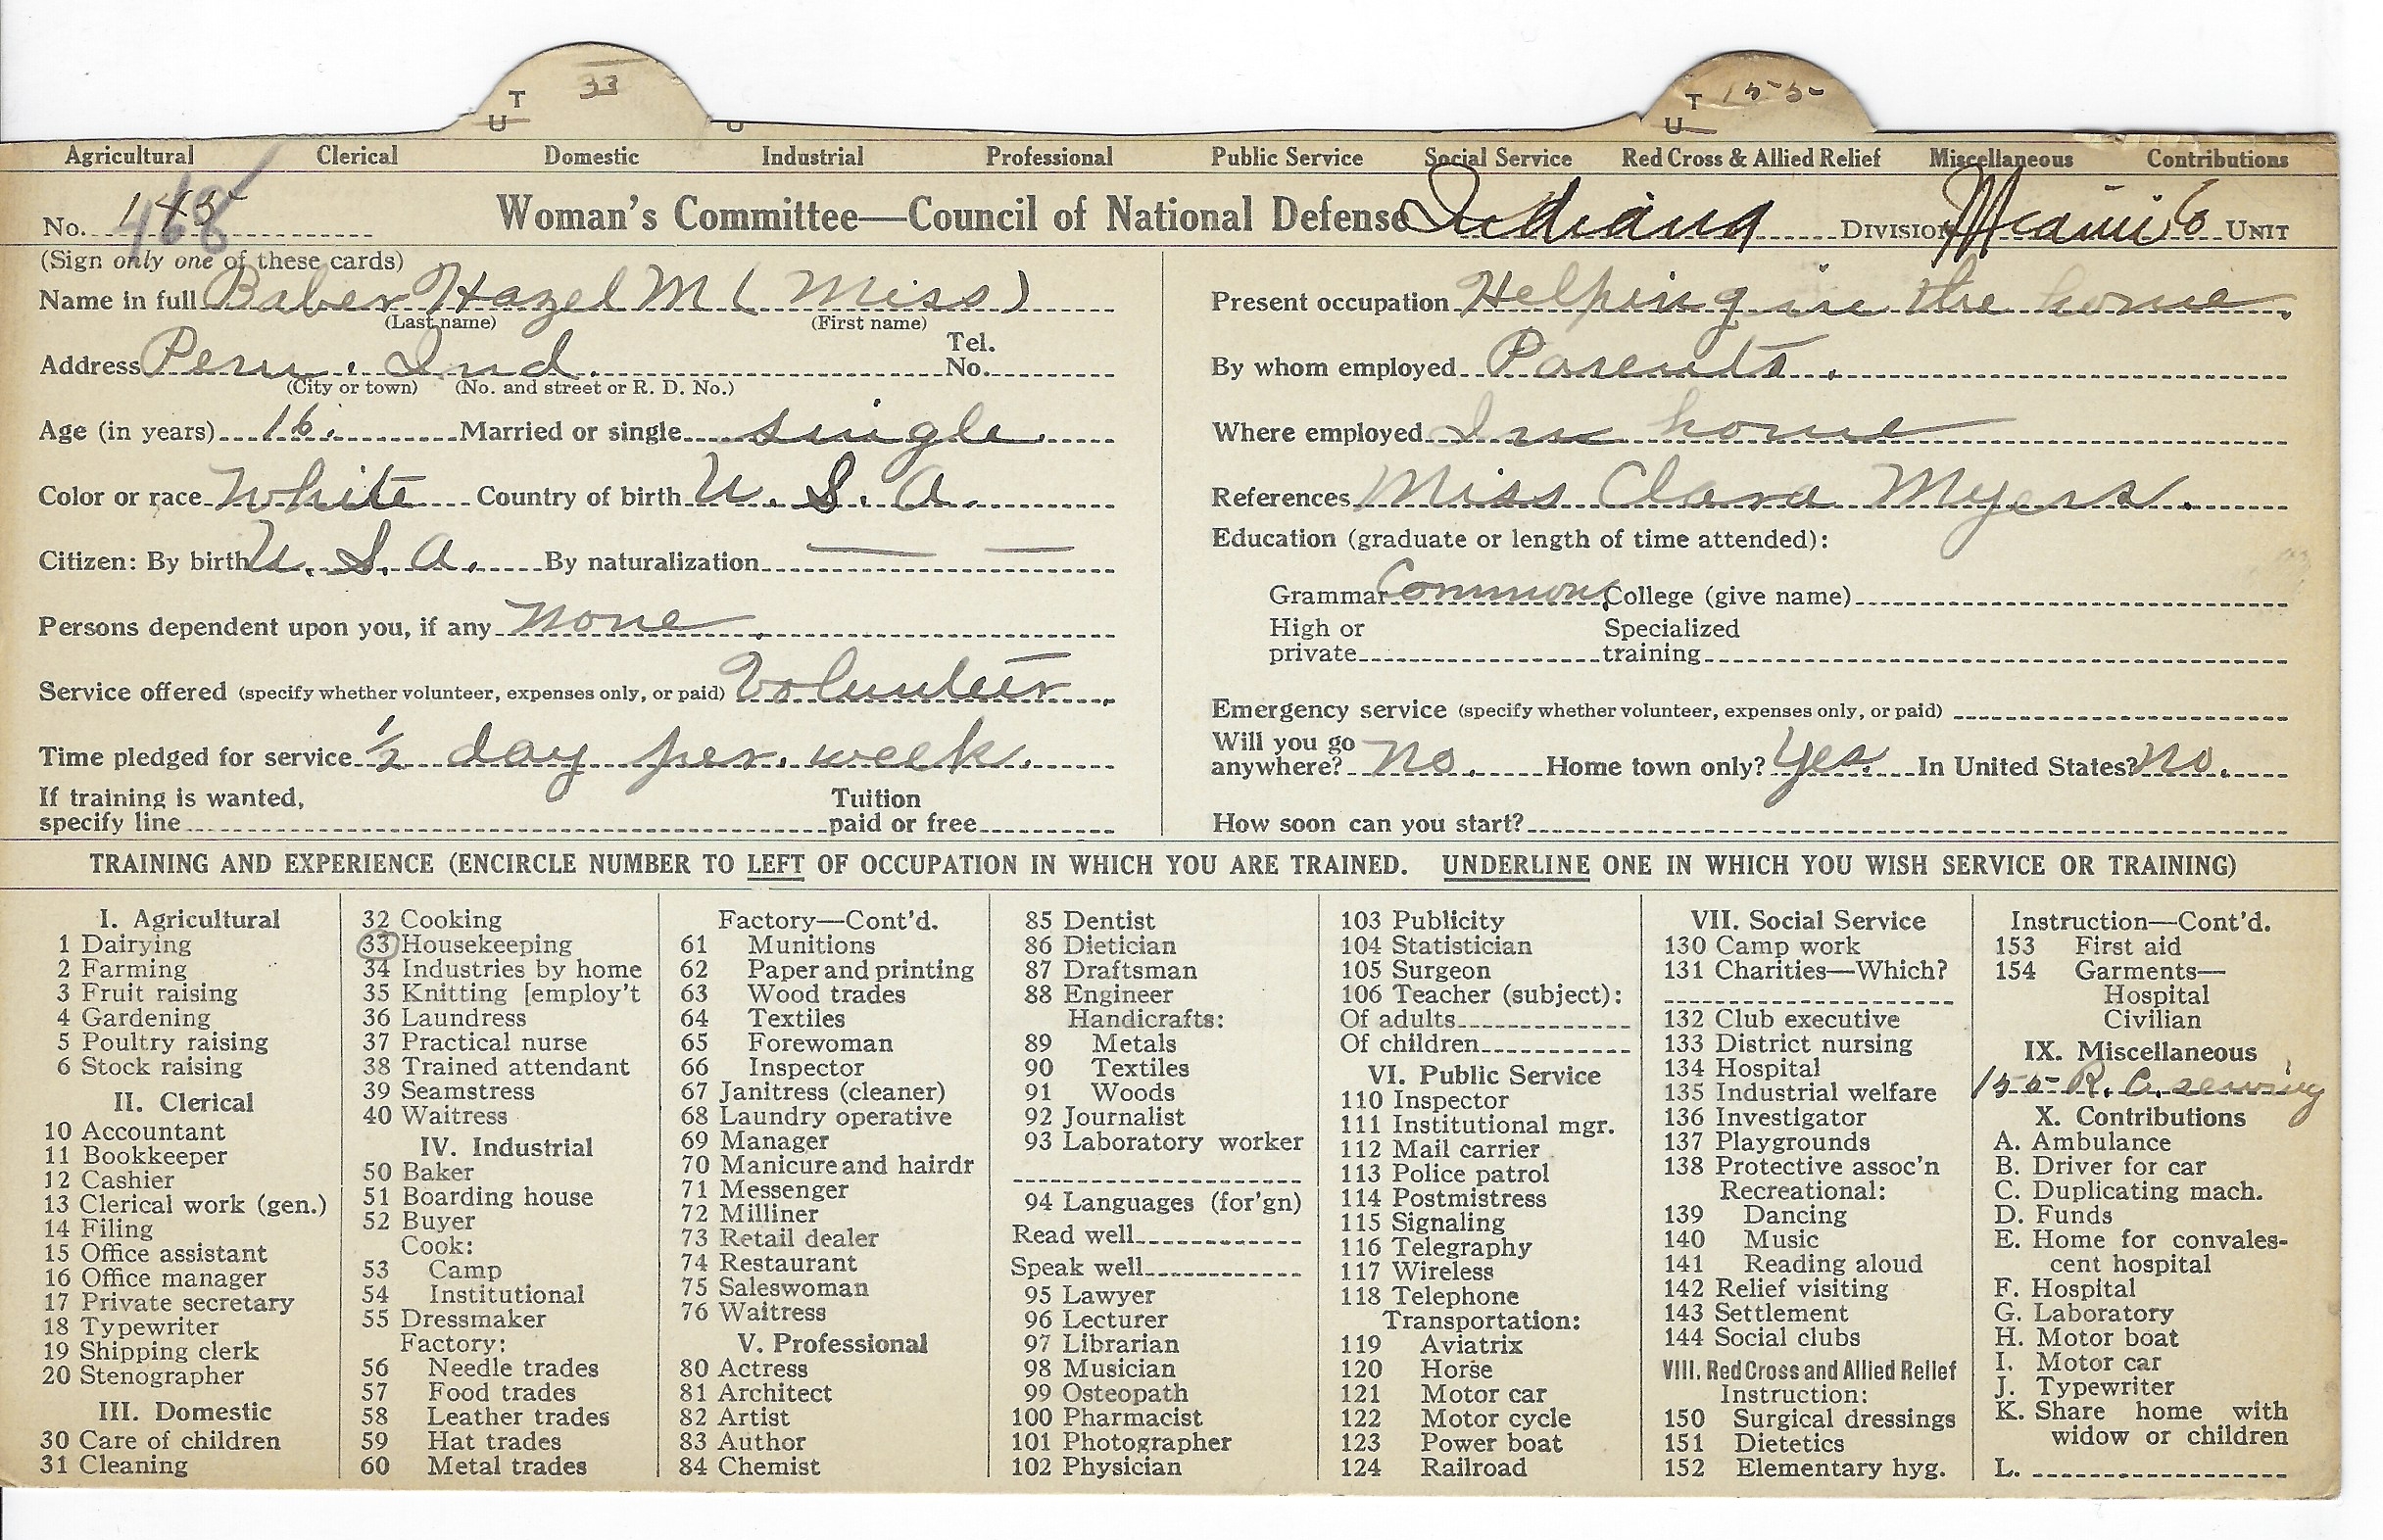 T 33 T 155
U U U
Agricultural Clerical Domestic Industrial Professional Public Service Social Service Red Cross & Allied Relief Miscellaneous Contributions
No. 145 468 Woman's Committee—Council of National Defense Indiana Division Miami Co Unit
(Sign only one of these cards)
Name in full Baber Hazel M (Miss)
(Last name) (First name)
Address Peru. Ind. Tel. No.
(City or town) (No. and street or R. D. No.)
Age (in years) 16. Married or single single.
Color or race White Country of birth U. S. A.
Citizen: By birth U. S. A. By naturalization — —
Persons dependent upon you, if any none.
Service offered (specify whether volunteer, expenses only, or paid) Volunteer.
Time pledged for service ½ day per. week.
If training is wanted, specify line Tuition paid or free
Present occupation Helping in the home.
By whom employed Parents.
Where employed In home
References Miss Clara Myers.
Education (graduate or length of time attended):
Grammar Common College (give name)
High or private Specialized training
Emergency service (specify whether volunteer, expenses only, or paid)
Will you go anywhere? no. Home town only? Yes. In United States? no.
How soon can you start?
TRAINING AND EXPERIENCE (ENCIRCLE NUMBER TO LEFT OF OCCUPATION IN WHICH YOU ARE TRAINED. UNDERLINE ONE IN WHICH YOU WISH SERVICE OR TRAINING)
I. Agricultural
1 Dairying
2 Farming
3 Fruit raising
4 Gardening
5 Poultry raising
6 Stock raising
II. Clerical
10 Accountant
11 Bookkeeper
12 Cashier
13 Clerical work (gen.)
14 Filing
15 Office assistant
16 Office manager
17 Private secretary
18 Typewriter
19 Shipping clerk
20 Stenographer
III. Domestic
30 Care of children
31 Cleaning
32 Cooking
33 Housekeeping
34 Industries by home
35 Knitting [employ't
36 Laundress
37 Practical nurse
38 Trained attendant
39 Seamstress
40 Waitress
IV. Industrial
50 Baker
51 Boarding house
52 Buyer
Cook:
53 Camp
54 Institutional
55 Dressmaker
Factory:
56 Needle trades
57 Food trades
58 Leather trades
59 Hat trades
60 Metal trades
Factory—Cont'd.
61 Munitions
62 Paper and printing
63 Wood trades
64 Textiles
65 Forewoman
66 Inspector
67 Janitress (cleaner)
68 Laundry operative
69 Manager
70 Manicure and hairdr
71 Messenger
72 Milliner
73 Retail dealer
74 Restaurant
75 Saleswoman
76 Waitress
V. Professional
80 Actress
81 Architect
82 Artist
83 Author
84 Chemist
85 Dentist
86 Dietician
87 Draftsman
88 Engineer
Handicrafts:
89 Metals
90 Textiles
91 Woods
92 Journalist
93 Laboratory worker
94 Languages (for'gn)
Read well
Speak well
95 Lawyer
96 Lecturer
97 Librarian
98 Musician
99 Osteopath
100 Pharmacist
101 Photographer
102 Physician
103 Publicity
104 Statistician
105 Surgeon
106 Teacher (subject):
Of adults
Of children
VI. Public Service
110 Inspector
111 Institutional mgr.
112 Mail carrier
113 Police patrol
114 Postmistress
115 Signaling
116 Telegraphy
117 Wireless
118 Telephone
Transportation:
119 Aviatrix
120 Horse
121 Motor car
122 Motor cycle
123 Power boat
124 Railroad
VII. Social Service
130 Camp work
131 Charities—Which?
132 Club executive
133 District nursing
134 Hospital
135 Industrial welfare
136 Investigator
137 Playgrounds
138 Protective assoc'n
Recreational:
139 Dancing
140 Music
141 Reading aloud
142 Relief visiting
143 Settlement
144 Social clubs
VIII. Red Cross and Allied Relief
Instruction:
150 Surgical dressings
151 Dietetics
152 Elementary hyg.
Instruction—Cont'd.
153 First aid
154 Garments—
Hospital
Civilian
IX. Miscellaneous
155 R. C. sewing
X. Contributions
A. Ambulance
B. Driver for car
C. Duplicating mach.
D. Funds
E. Home for convales-
cent hospital
F. Hospital
G. Laboratory
H. Motor boat
I. Motor car
J. Typewriter
K. Share home with
widow or children
L.